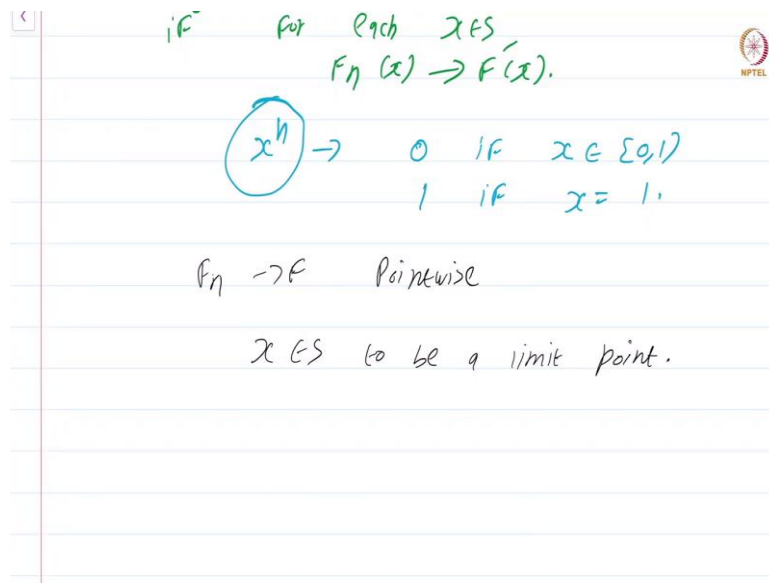 if for each x ∈ S,
Fn (x) → F(x).
NPTEL
xⁿ → 0 if x ∈ [0,1)
1 if x = 1.
Fn → F Pointwise
x ∈ S to be a limit point.